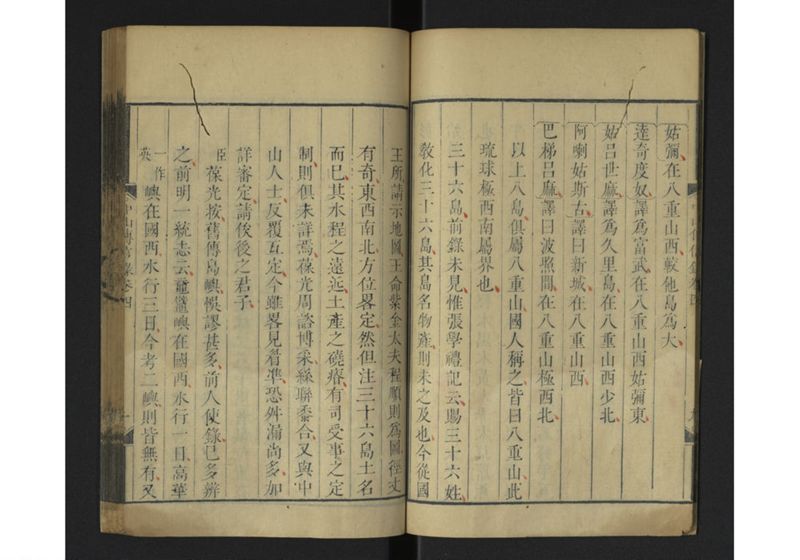 姑彌在八重山西較他島爲大
達奇度奴譯爲富武在八重山西姑彌東
姑呂世麻譯爲久里島在八重山西少北
阿喇姑斯古譯曰新城在八重山西
巴梯呂麻譯曰波照間在八重山極西北
以上八島俱屬八重山國人稱之皆曰八重山此
琉球極西南屬界也
三十六島前錄未見惟張學禮記云賜三十六姓
教化三十六島其島名物產則未之及也今從國
王所請示地圖王命紫金大夫程順則爲圖徑丈
有奇東西南北方位畧定然但注三十六島土名
而已其水程之遠近土產之磽瘠有司受事之定
制則俱未詳焉葆光周諮博采絲聯黍合又與中
山人士反覆互定今雖畧見眉準恐舛漏尚多加
詳審定請俟後之君子
臣葆光按舊傳島嶼悞謬甚多前人使錄已多辨
之前明一統志云鼊嶼在國西水行一日高華
嶼一作英在國西水行三日今考二嶼則皆無有又
中山傳信錄卷四